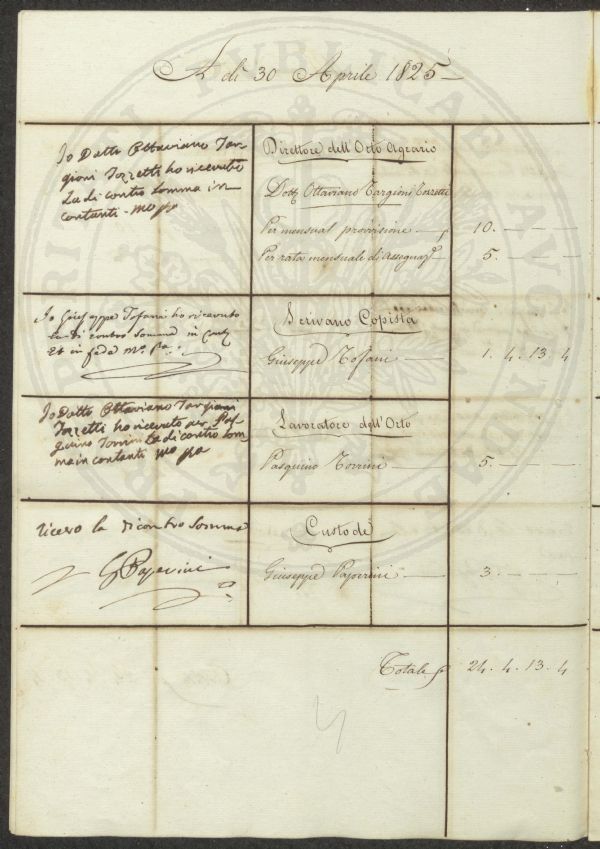 A dì 30 Aprile 1825
Io Dott. Ottaviano Tar-
gioni Tozzetti ho ricevuto
La di contro somma in
contanti mo pa
Direttore dell'Orto Agrario
Dott. Ottaviano Targioni Tozzetti
Per mensual provvisione 10. — — —
Per rata mensuale di Assegnaz.e 5. — — —
Io Giuseppe Tofani ho ricevuto
la di contro somma in Conti
Et in fede Mo. pa.
Scrivano Copista
Giuseppe Tofani — 1. 4. 13. 4
Io Dotto Ottaviano Targioni
Tozzetti ho ricevuto per Pas-
quino Torrini La di contro som
ma in contanti mo pa
Lavoratore dell'Orto
Pasquino Torrini — 5. — — —
ricevo la di contro somma
G Paperini
Custode
Giuseppe Paperini — 3. — — —
Totale 24. 4. 13. 4